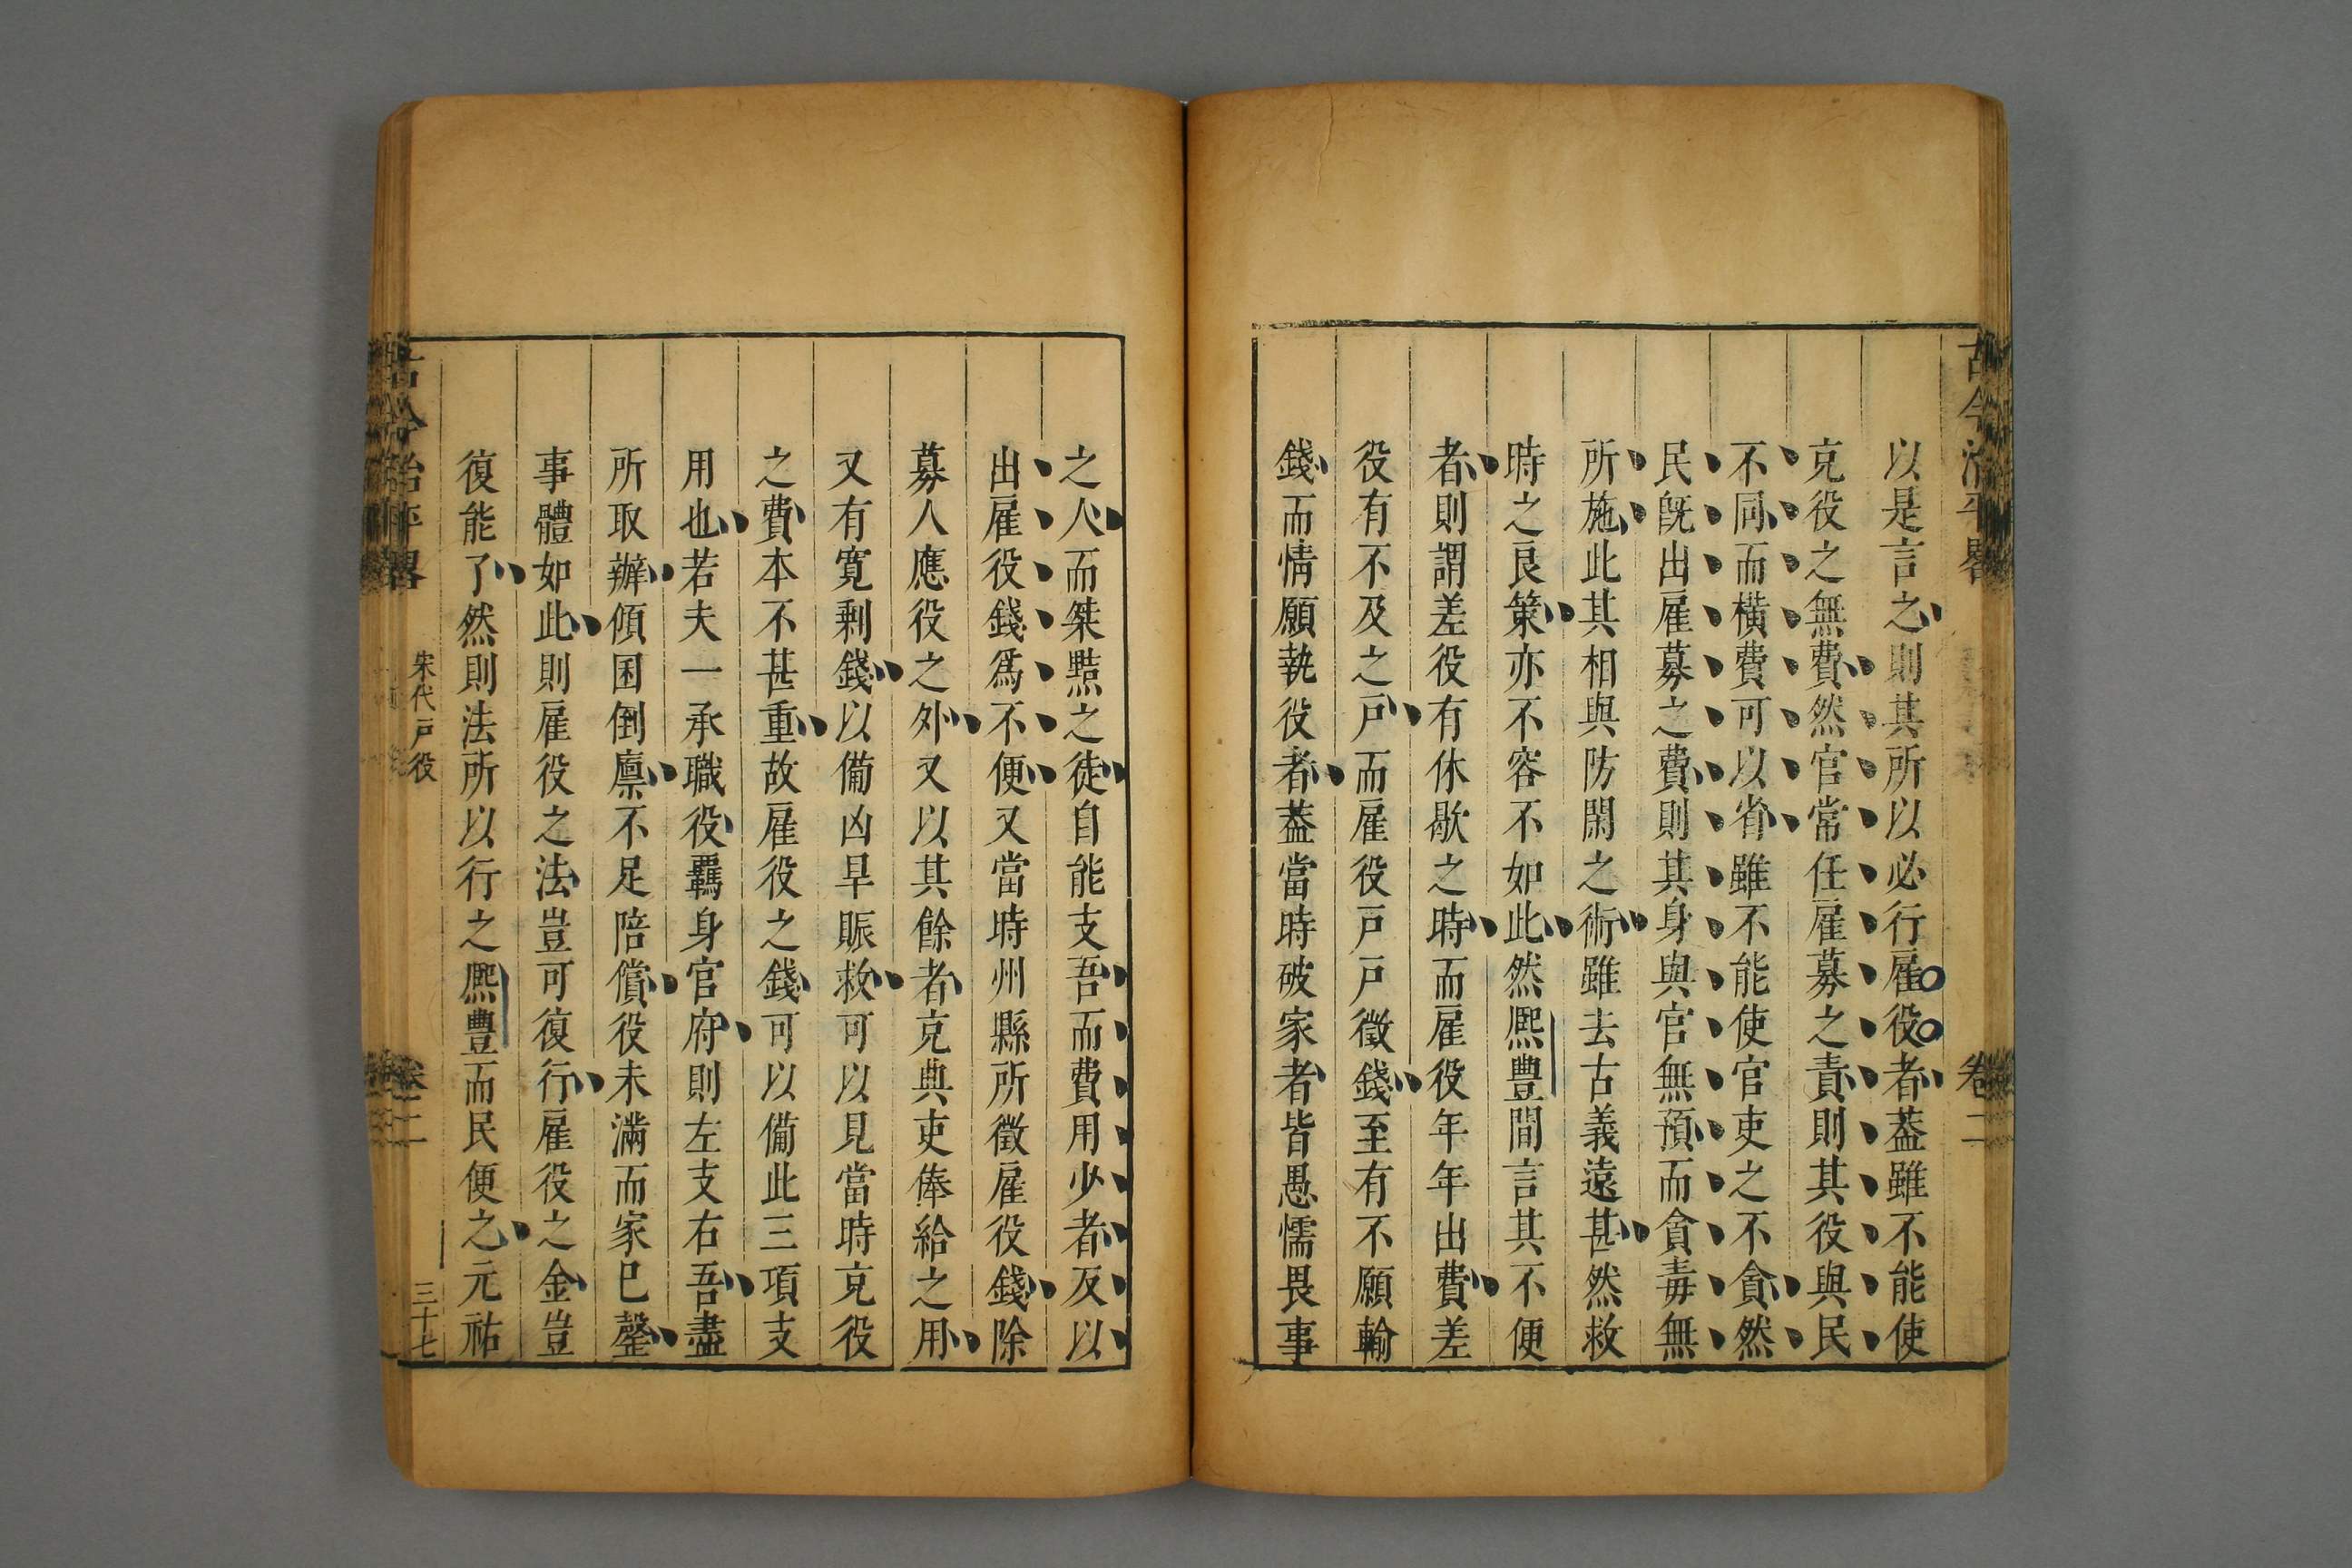 古今治平畧
卷二
以是言之則其所以必行雇役者葢雖不能使
克役之無費然官常任雇募之責則其役與民
不同而橫費可以省雖不能使官吏之不貪然
民旣出雇募之費則其身與官無預而貪毒無
所施此其相與防閑之術雖去古義遠甚然救
時之良策亦不容不如此然熈豐間言其不便
者則謂差役有休歇之時而雇役年年出費差
役有不及之戸而雇役戸戸徵錢至有不願輸
錢而情願執役者葢當時破家者皆愚懦畏事
之人而桀黠之徒自能支吾而費用少者反以
出雇役錢爲不便又當時州縣所徵雇役錢除
募人應役之外又以其餘者克典吏俸給之用
又有寛剩錢以備凶旱賑救可以見當時克役
之費本不甚重故雇役之錢可以備此三項支
用也若夫一承職役羈身官府則左支右吾盡
所取辦傾囷倒廪不足陪償役未滿而家已罄
事體如此則雇役之法豈可復行雇役之金豈
復能了然則法所以行之熈豐而民便之元祐
古今治平畧
宋代戸役
卷二
三十七